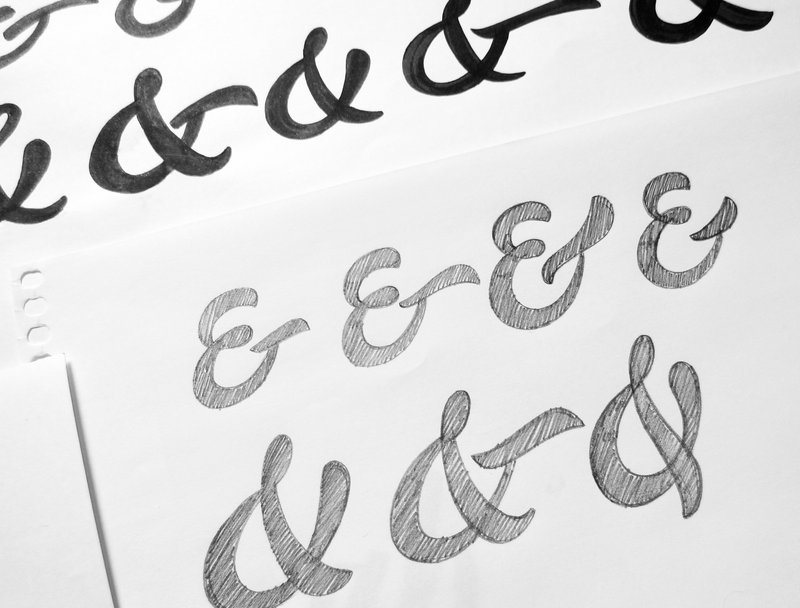 & &
& & & & &
& & & &
& & &